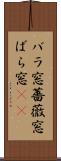 バラ窓薔薇窓
ばら窓